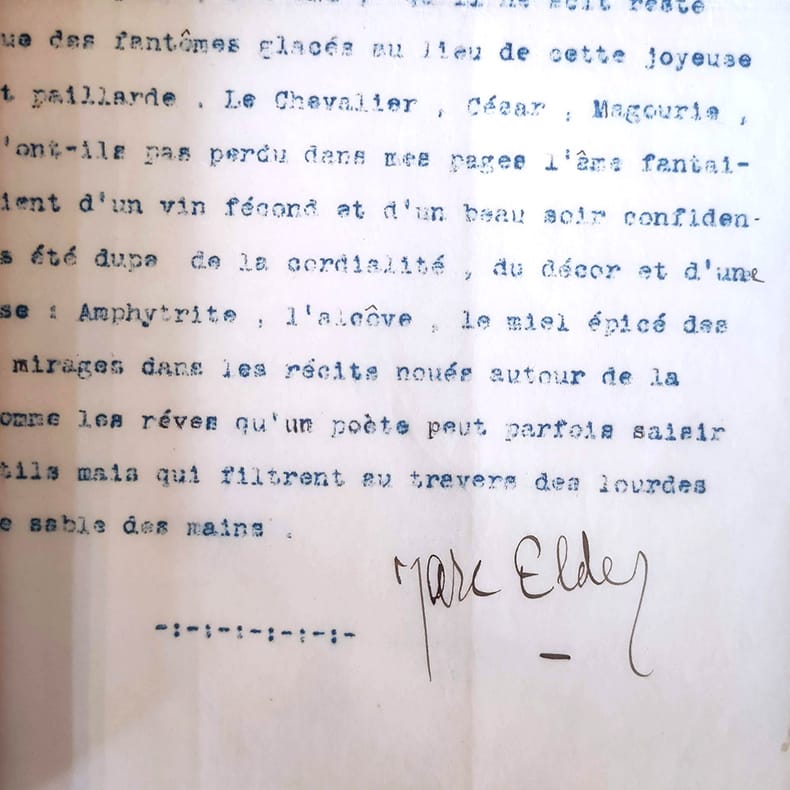 qu'il ne soit resté
ue des fantômes glacés au lieu de cette joyeuse
t paillarde . Le Chevalier , César , Magourie ,
'ont-ils pas perdu dans mes pages l'âme fantai-
ient d'un vin fécond et d'un beau soir confiden-
s été dupe de la cordialité , du décor et d'une
se : Amphytrite , l'alcôve , le miel épicé des
mirages dans les récits noués autour de la
omme les réves qu'un poète peut parfois saisir
tils mais qui filtrent au travers des lourdes
e sable des mains .
Marc Elder
-:-:-:-:-:-:-